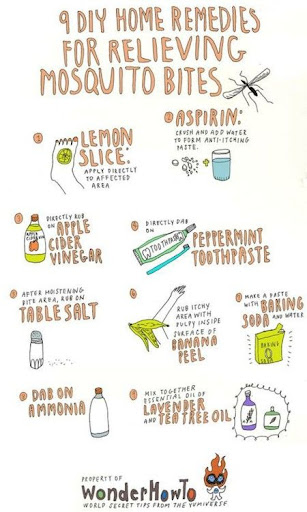 9 DIY HOME REMEDIES
FOR RELIEVING
MOSQUITO BITES
1
LEMON
SLICE:
APPLY DIRECTLY
TO AFFECTED
AREA
2
ASPIRIN:
CRUSH AND ADD WATER
TO FORM ANTI-ITCHING
PASTE.
3
DIRECTLY RUB
ON APPLE
CIDER
VINEGAR
4
DIRECTLY DAB
ON
TOOTHPASTE
PEPPERMINT
TOOTHPASTE
5
AFTER MOISTENING
BITE AREA, RUB ON
TABLE SALT
6
RUB ITCHY
AREA WITH
PULPY INSIDE
SURFACE OF
BANANA
PEEL
MAKE A PASTE
WITH BAKING
SODA AND WATER
BAKING
DAB ON
AMMONIA
9
MIX TOGETHER
ESSENTIAL OIL OF
LAVENDER
AND TEA TREE OIL
PROPERTY OF
WonderHowTo
WORLD SECRET TIPS FROM THE YUMIVERSE